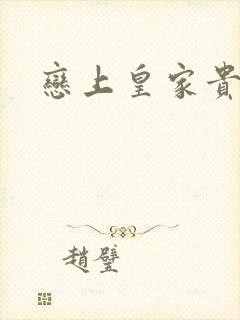 戀上皇家貴
趙璧